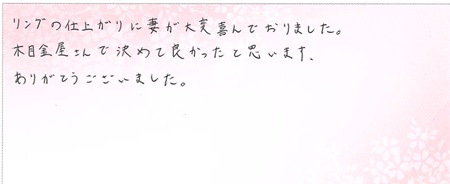 リングの仕上がりに妻が大変喜んでおりました。
木目金屋さんで決めて良かったと思います。
ありがとうございました。